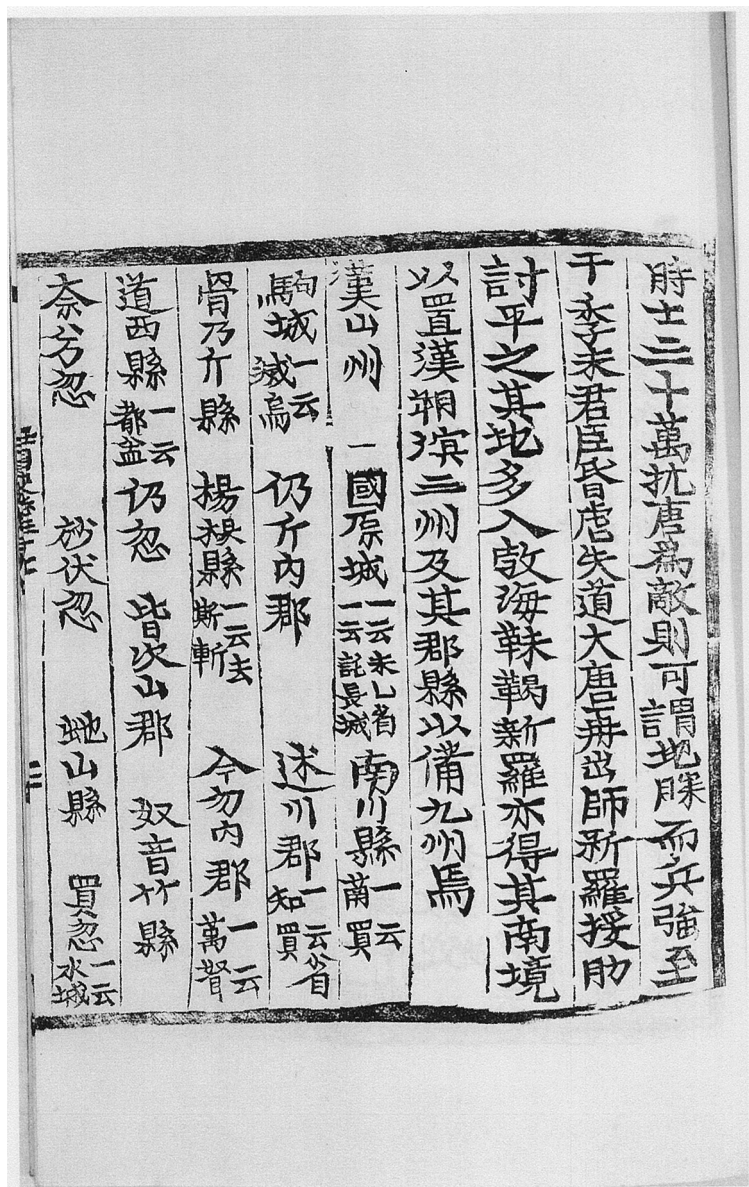 時士三十萬抗唐爲敵則可謂地勝而兵強至
于季末君臣昏虐失道大唐再出師新羅援助
討平之其地多入渤海靺鞨新羅亦得其南境
以置漢朔溟三州及其郡縣以備九州焉
漢山州 國原城一云未乙省一云託長城 南川縣一云南買
駒城一云滅烏 仍斤內郡 述川郡一云省知買
骨乃斤縣 楊根縣一云去斯斬 今勿內郡一云萬弩
道西縣一云都盆 仍忽 皆次山郡 奴音竹縣
奈兮忽 沙伏忽 虵山縣 買忽一云水城